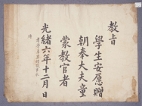 教旨
學生安應贈
朝奉大夫童
蒙教官者
光緖六年十二月日